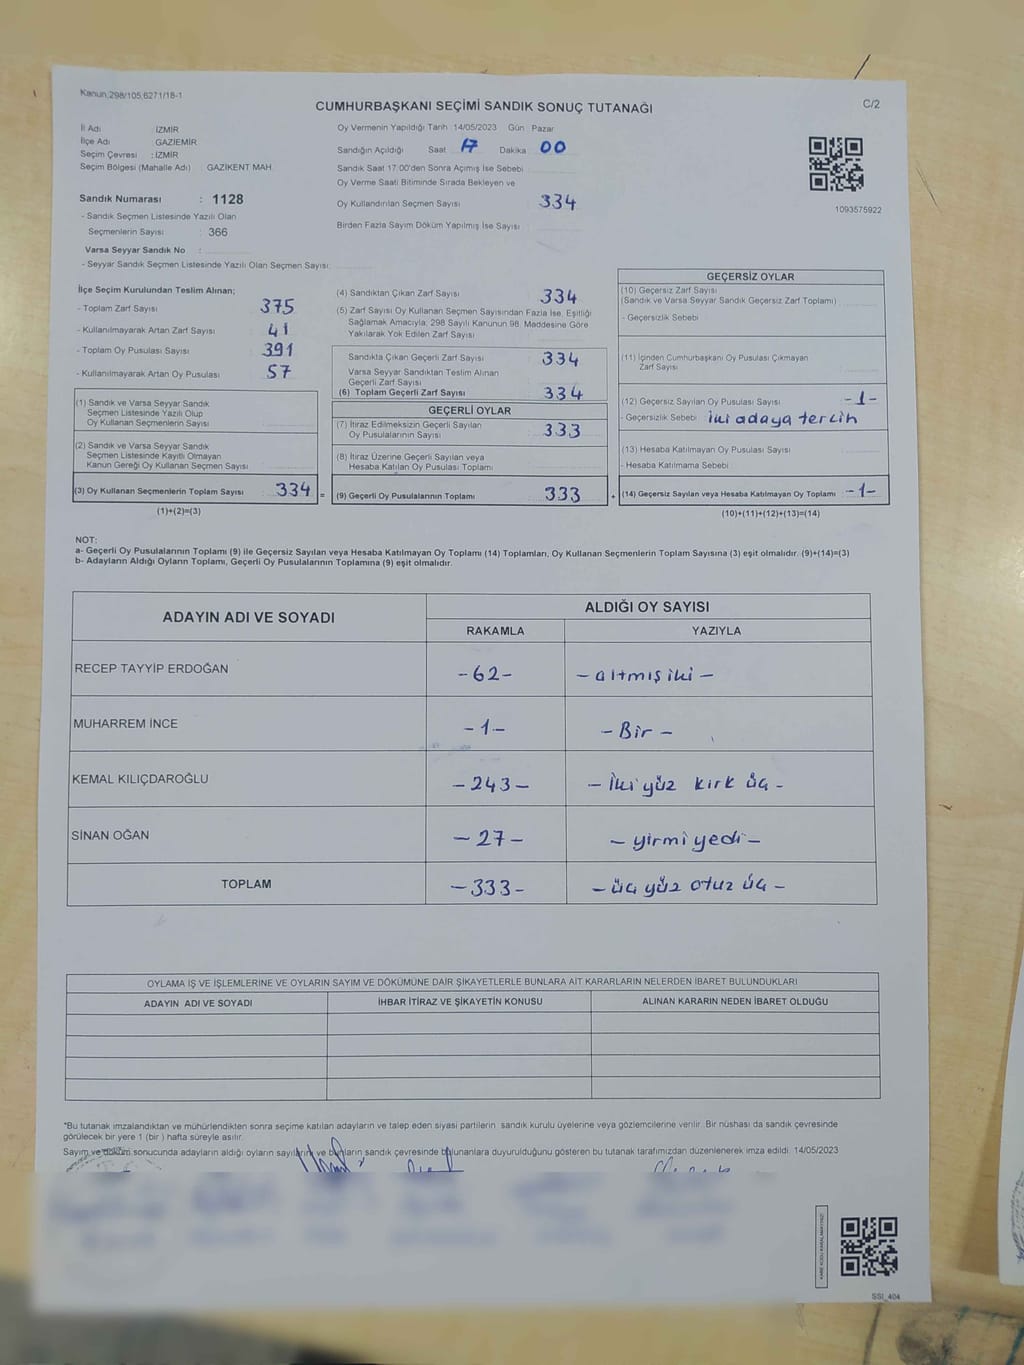 Kanun;298/105,6271/18-1
CUMHURBAŞKANI SEÇİMİ SANDIK SONUÇ TUTANAĞI
C/2
İl Adı : İZMİR
İlçe Adı : GAZİEMİR
Seçim Çevresi : İZMİR
Seçim Bölgesi (Mahalle Adı) : GAZİKENT MAH.
Oy Vermenin Yapıldığı Tarih :14/05/2023 Gün : Pazar
Sandığın Açıldığı Saat 17 Dakika 00
Sandık Saat 17:00'den Sonra Açımış İse Sebebi
Oy Verme Saati Bitiminde Sırada Bekleyen ve
Oy Kullandırılan Seçmen Sayısı 334
Birden Fazla Sayım Döküm Yapılmış İse Sayısı
1093575922
Sandık Numarası : 1128
- Sandık Seçmen Listesinde Yazılı Olan
Seçmenlerin Sayısı : 366
Varsa Seyyar Sandık No :
- Seyyar Sandık Seçmen Listesinde Yazılı Olan Seçmen Sayısı:
İlçe Seçim Kurulundan Teslim Alınan;
- Toplam Zarf Sayısı 375
- Kullanılmayarak Artan Zarf Sayısı 41
- Toplam Oy Pusulası Sayısı 391
- Kullanılmayarak Artan Oy Pusulası 57
(1) Sandık ve Varsa Seyyar Sandık
Seçmen Listesinde Yazılı Olup
Oy Kullanan Seçmenlerin Sayısı
(2) Sandık ve Varsa Seyyar Sandık
Seçmen Listesinde Kayıtlı Olmayan
Kanun Gereği Oy Kullanan Seçmen Sayısı
(3) Oy Kullanan Seçmenlerin Toplam Sayısı 334 =
(1)+(2)=(3)
(4) Sandıktan Çıkan Zarf Sayısı 334
(5) Zarf Sayısı Oy Kullanan Seçmen Sayısından Fazla İse, Eşitliği
Sağlamak Amacıyla; 298 Sayılı Kanunun 98. Maddesine Göre
Yakılarak Yok Edilen Zarf Sayısı
Sandıkta Çıkan Geçerli Zarf Sayısı 334
Varsa Seyyar Sandıktan Teslim Alınan
Geçerli Zarf Sayısı
(6) Toplam Geçerli Zarf Sayısı 334
GEÇERLİ OYLAR
(7) İtiraz Edilmeksizin Geçerli Sayılan
Oy Pusulalarının Sayısı 333
(8) İtiraz Üzerine Geçerli Sayılan veya
Hesaba Katılan Oy Pusulası Toplamı
(9) Geçerli Oy Pusulalarının Toplamı 333 +
GEÇERSİZ OYLAR
(10) Geçersiz Zarf Sayısı
(Sandık ve Varsa Seyyar Sandık Geçersiz Zarf Toplamı)
- Geçersizlik Sebebi :
(11) İçinden Cumhurbaşkanı Oy Pusulası Çıkmayan
Zarf Sayısı
(12) Geçersiz Sayılan Oy Pusulası Sayısı -1-
- Geçersizlik Sebebi : iki adaya tercih
(13) Hesaba Katılmayan Oy Pusulası Sayısı
- Hesaba Katılmama Sebebi :
(14) Geçersiz Sayılan veya Hesaba Katılmayan Oy Toplamı -1-
(10)+(11)+(12)+(13)=(14)
NOT:
a- Geçerli Oy Pusulalarının Toplamı (9) ile Geçersiz Sayılan veya Hesaba Katılmayan Oy Toplamı (14) Toplamları, Oy Kullanan Seçmenlerin Toplam Sayısına (3) eşit olmalıdır. (9)+(14)=(3)
b- Adayların Aldığı Oyların Toplamı, Geçerli Oy Pusulalarının Toplamına (9) eşit olmalıdır.
ADAYIN ADI VE SOYADI
ALDIĞI OY SAYISI
RAKAMLA YAZIYLA
RECEP TAYYİP ERDOĞAN -62- - altmış iki -
MUHARREM İNCE -1- - Bir -
KEMAL KILIÇDAROĞLU -243- - İki yüz kırk üç -
SİNAN OĞAN -27- - yirmi yedi -
TOPLAM -333- - üç yüz otuz üç -
OYLAMA İŞ VE İŞLEMLERİNE VE OYLARIN SAYIM VE DÖKÜMÜNE DAİR ŞİKAYETLERLE BUNLARA AİT KARARLARIN NELERDEN İBARET BULUNDUKLARI
ADAYIN ADI VE SOYADI İHBAR İTİRAZ VE ŞİKAYETİN KONUSU ALINAN KARARIN NEDEN İBARET OLDUĞU
*Bu tutanak imzalandıktan ve mühürlendikten sonra seçime katılan adayların ve talep eden siyasi partilerin sandık kurulu üyelerine veya gözlemcilerine verilir. Bir nüshası da sandık çevresinde
görülecek bir yere 1 (bir ) hafta süreyle asılır.
Sayım ve döküm sonucunda adayların aldığı oyların sayıları ve bunların sandık çevresinde bulunanlara duyurulduğunu gösteren bu tutanak tarafımızdan düzenlenerek imza edildi. 14/05/2023
SSI_404